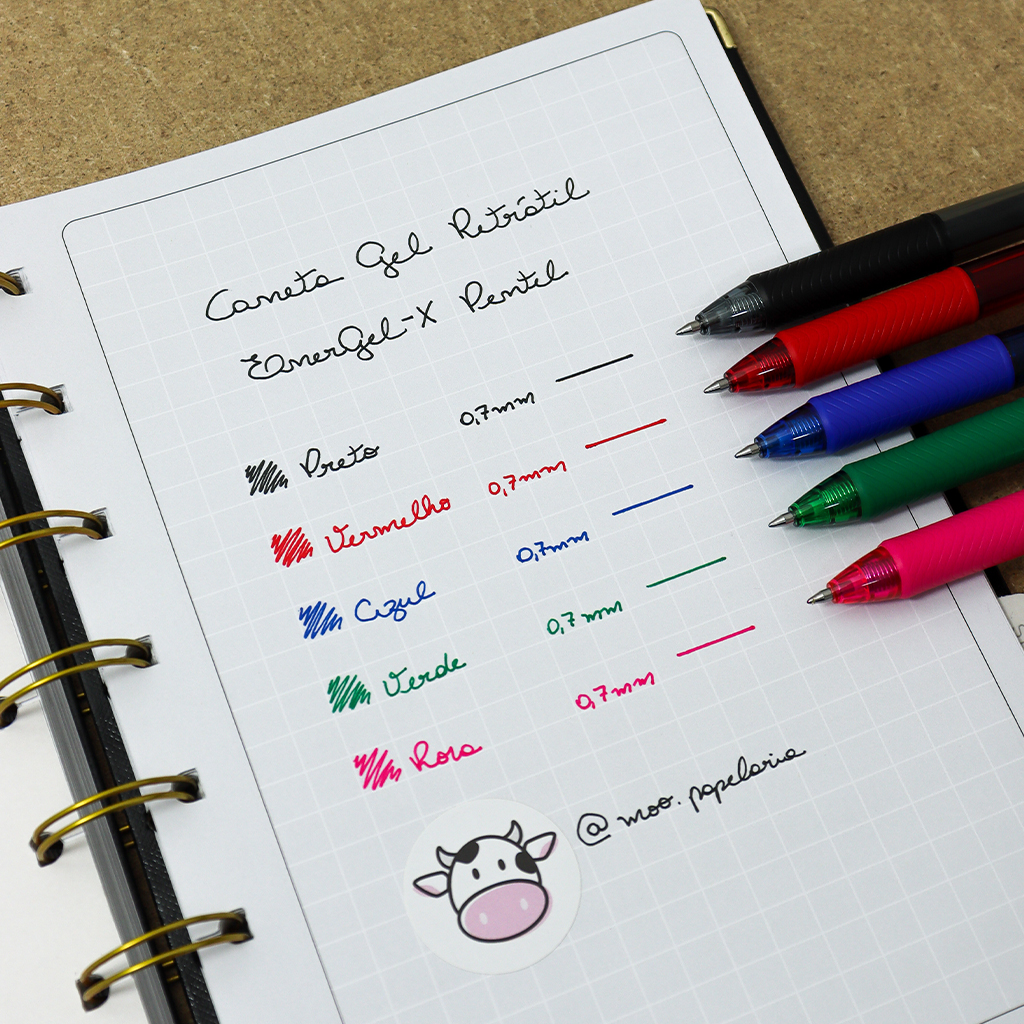 Caneta Gel Retrátil
EnerGel-X Pentel
Preto 0,7mm
Vermelho 0,7mm
Azul 0,7mm
Verde 0,7mm
Rosa 0,7mm
@moo.papelaria